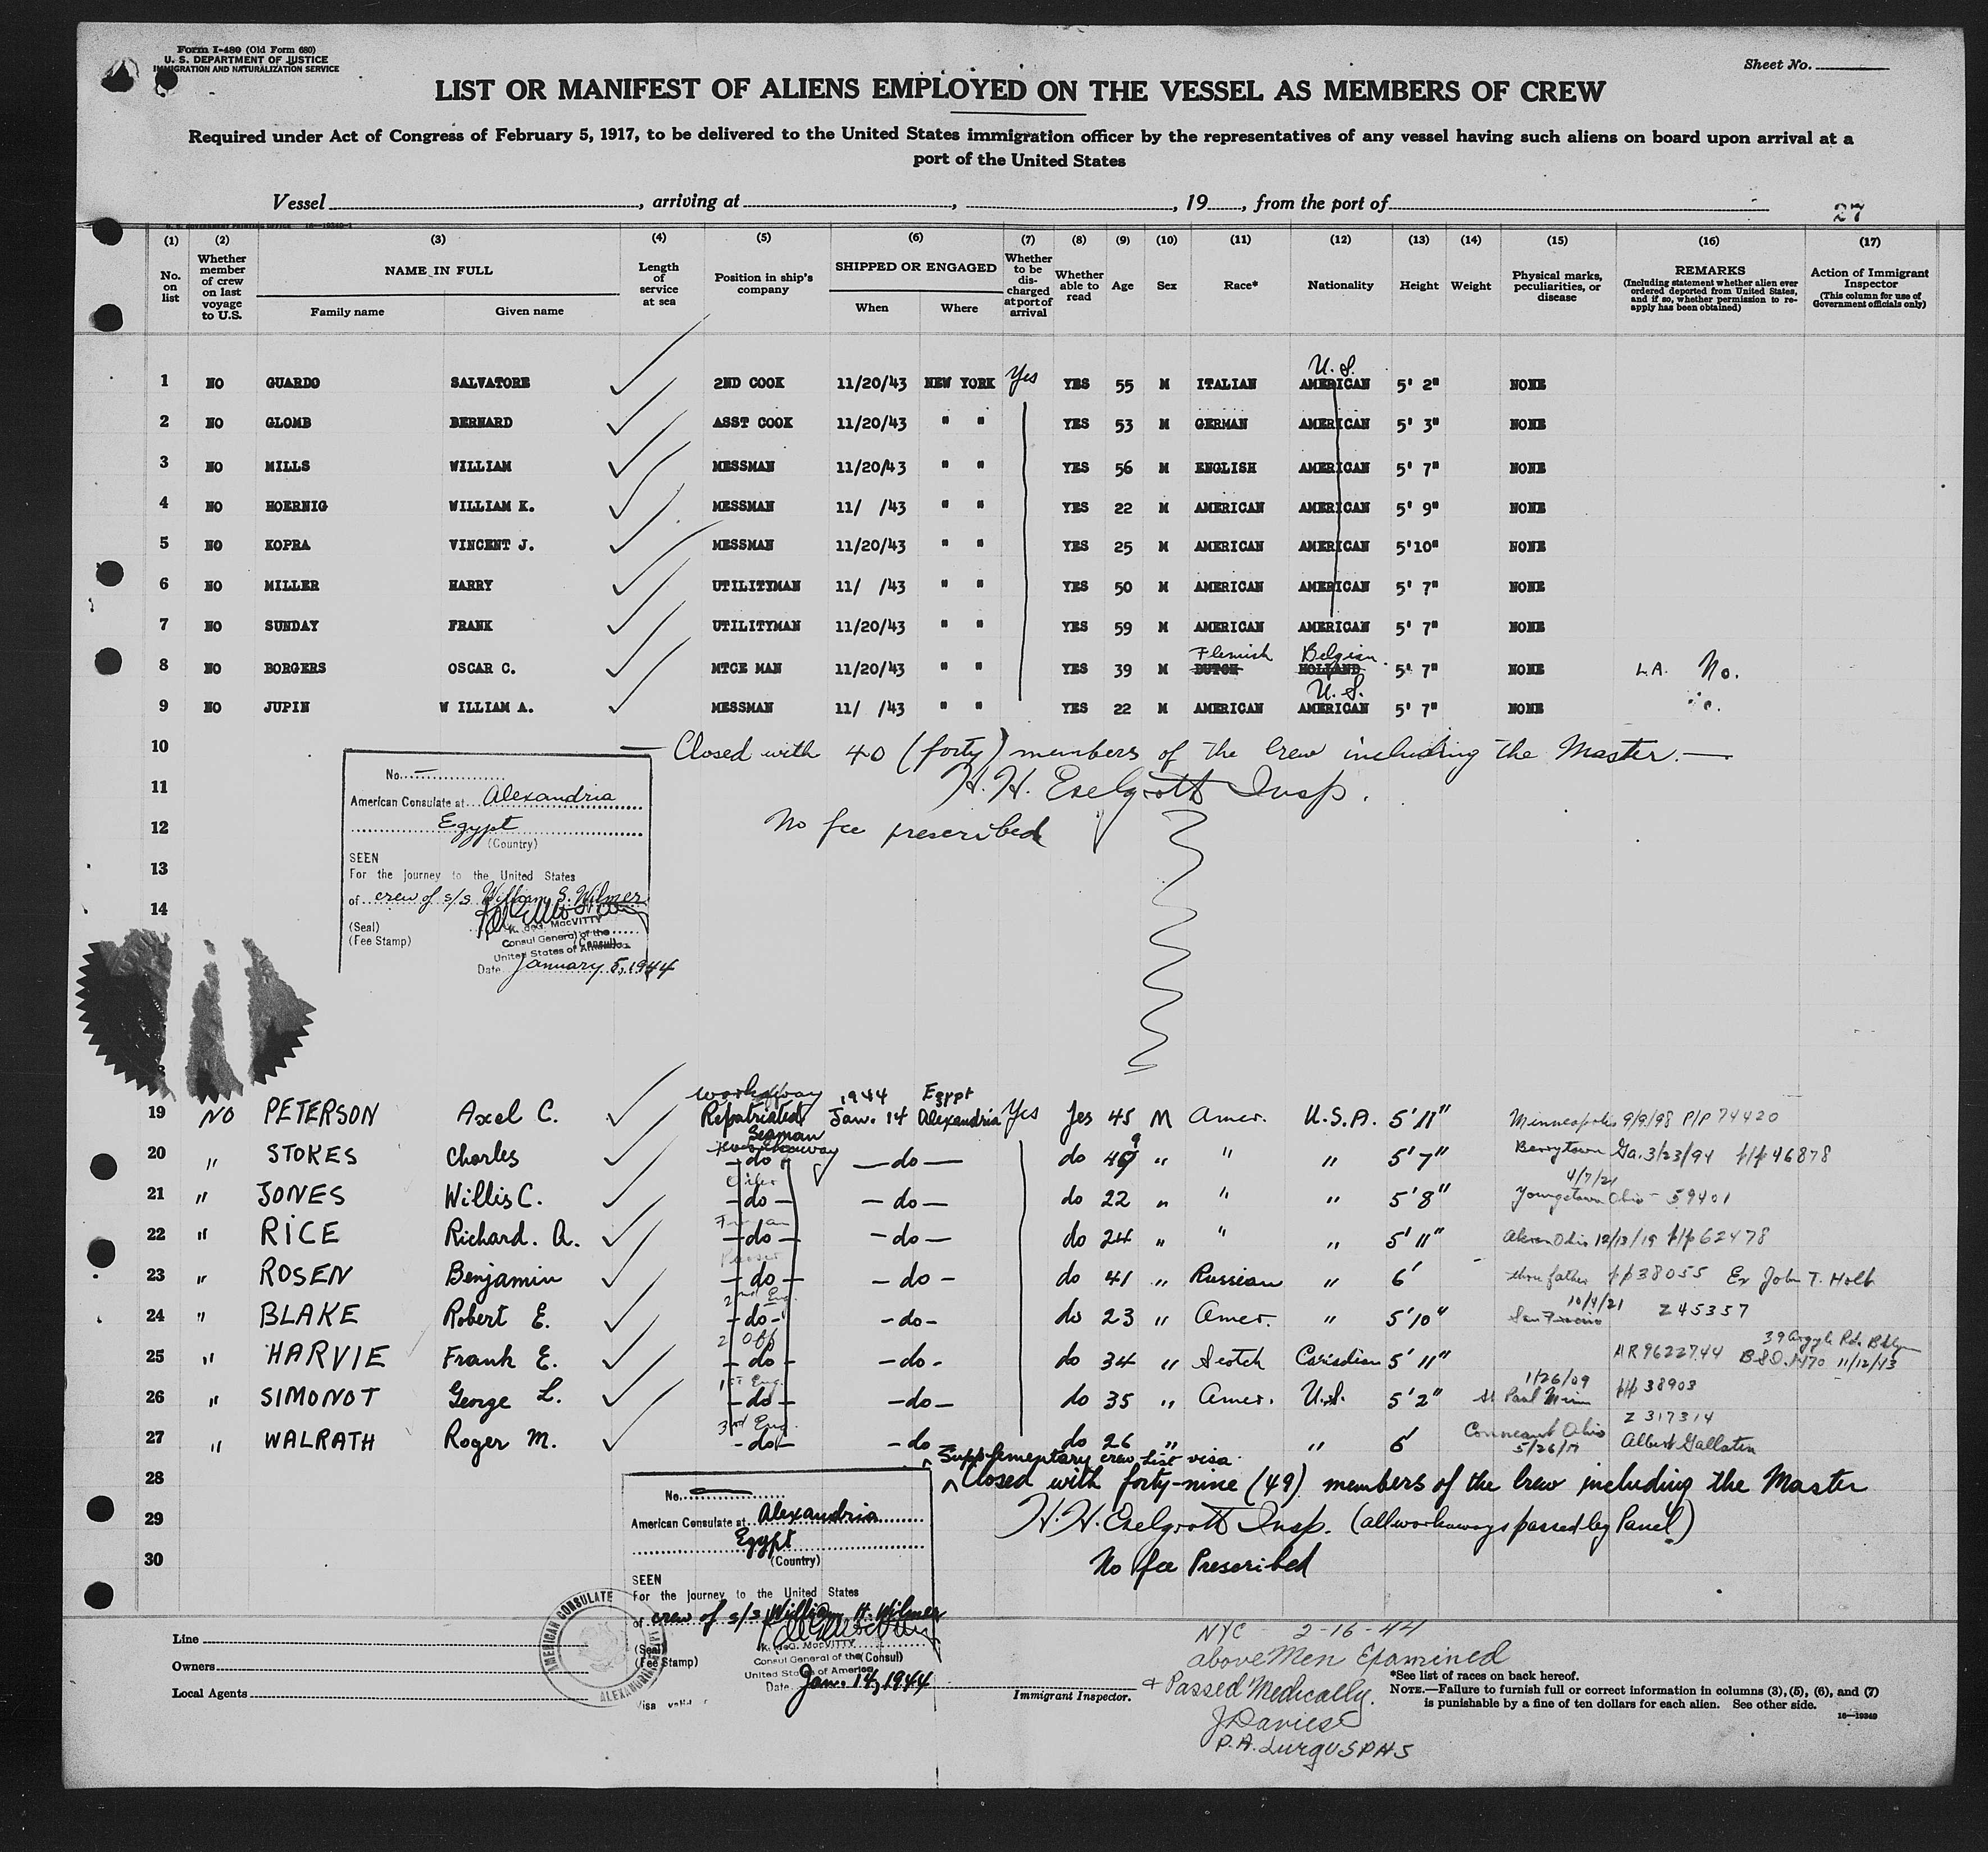 Form I-480 (Old Form 680)
U. S. DEPARTMENT OF JUSTICE
IMMIGRATION AND NATURALIZATION SERVICE
Sheet No.
LIST OR MANIFEST OF ALIENS EMPLOYED ON THE VESSEL AS MEMBERS OF CREW
Required under Act of Congress of February 5, 1917, to be delivered to the United States immigration officer by the representatives of any vessel having such aliens on board upon arrival at a
port of the United States
Vessel , arriving at , , 19 , from the port of
27
(1) (2) (3) (4) (5) (6) (7) (8) (9) (10) (11) (12) (13) (14) (15) (16) (17)
No. on list
Whether member of crew on last voyage to U.S.
NAME IN FULL
Family name Given name
Length of service at sea
Position in ship's company
SHIPPED OR ENGAGED
When Where
Whether to be discharged at port of arrival
Whether able to read
Age Sex Race* Nationality Height Weight
Physical marks, peculiarities, or disease
REMARKS
(Including statement whether alien ever ordered deported from United States, and if so, whether permission to reapply has been obtained)
Action of Immigrant Inspector
(This column for use of Government officials only)
U. S.
1 NO GUARDO SALVATORE 2ND COOK 11/20/43 NEW YORK Yes YES 55 M ITALIAN AMERICAN 5' 2" NONE
2 NO GLOMB BERNARD ASST COOK 11/20/43 " " YES 53 M GERMAN AMERICAN 5' 3" NONE
3 NO MILLS WILLIAM MESSMAN 11/20/43 " " YES 56 M ENGLISH AMERICAN 5' 7" NONE
4 NO HOERNIG WILLIAM K. MESSMAN 11/ /43 " " YES 22 M AMERICAN AMERICAN 5' 9" NONE
5 NO KOPRA VINCENT J. MESSMAN 11/20/43 " " YES 25 M AMERICAN AMERICAN 5'10" NONE
6 NO MILLER HARRY UTILITYMAN 11/ /43 " " YES 50 M AMERICAN AMERICAN 5' 7" NONE
7 NO SUNDAY FRANK UTILITYMAN 11/20/43 " " YES 59 M AMERICAN AMERICAN 5' 7" NONE
Flemish Belgian
8 NO BORGERS OSCAR C. MTCE MAN 11/20/43 " " YES 39 M DUTCH HOLLAND 5' 7" NONE L.A. No.
U. S.
9 NO JUPIN W ILLIAM A. MESSMAN 11/ /43 " " YES 22 M AMERICAN AMERICAN 5' 7" NONE
10 Closed with 40 (forty) members of the Crew including the Master.
11 H. H. Eselgroth Insp.
12 No fee prescribed
13
14
No.
American Consulate at Alexandria
Egypt
(Country)
SEEN
For the Journey to the United States
of crew of s/s William S. Wilmer
(Seal)
(Fee Stamp)
K. deG. MacVITTY
Consul General of the
(Consul)
United States of America
Date January 5, 1944
Workaway 1944 Egypt
19 NO PETERSON Axel C. Repatriated Seaman Jan. 14 Alexandria Yes Yes 45 M Amer. U.S.A. 5'11" Minneapolis 9/9/98 P/P 74420
20 " STOKES Charles -do- -do- do 49 " " " 5'7" Berrytown Ga. 3/23/94 p/p 46878
21 " JONES Willis C. -do- -do- do 22 " " " 5'8" Youngstown Ohio 4/7/21 59401
22 " RICE Richard. A. -do- -do- do 24 " " " 5'11" Akron Ohio 12/13/19 p/p 62478
23 " ROSEN Benjamin -do- -do- do 41 " Russian " 6' thru father pp 38055 Ex John T. Holt
2nd Eng.
24 " BLAKE Robert E. -do- -do- do 23 " Amer. " 5'10" 10/4/21 Z 45357
2 Off
25 " HARVIE Frank E. -do- -do- do 34 " Scotch Canadian 5'11" AR 9622744 39 Argyle Rd. Bklyn 11/12/43
1st Eng.
26 " SIMONOT George L. -do- -do- do 35 " Amer. U.S. 5'2" 1/26/09 St Paul Minn p/p 38903
3rd Eng.
27 " WALRATH Roger M. -do- -do- do 26 " " 6' Conneaut Ohio 5/26/17 Z 317314 Albert Gallatin
Supplementary crew list visa
28 Closed with forty-nine (49) members of the Crew including the Master
29 H. H. Eselgroth Insp. (all workaways passed by Panel)
30 No fee Prescribed
No.
American Consulate at Alexandria
Egypt
(Country)
SEEN
For the Journey to the United States
of crew of s/s William H. Wilmer
(Seal)
(Fee Stamp)
K. deG. MacVITTY
Consul General of the (Consul)
United States of America
Date Jan. 14, 1944
AMERICAN CONSULATE
Line
Owners
Local Agents
Immigrant Inspector.
NYC 2-16-44
above Men Examined
+ Passed Medically.
J Davies
P.A. Surg USPHS
*See list of races on back hereof.
NOTE.—Failure to furnish full or correct information in columns (3), (5), (6), and (7)
is punishable by a fine of ten dollars for each alien. See other side.
16—19349